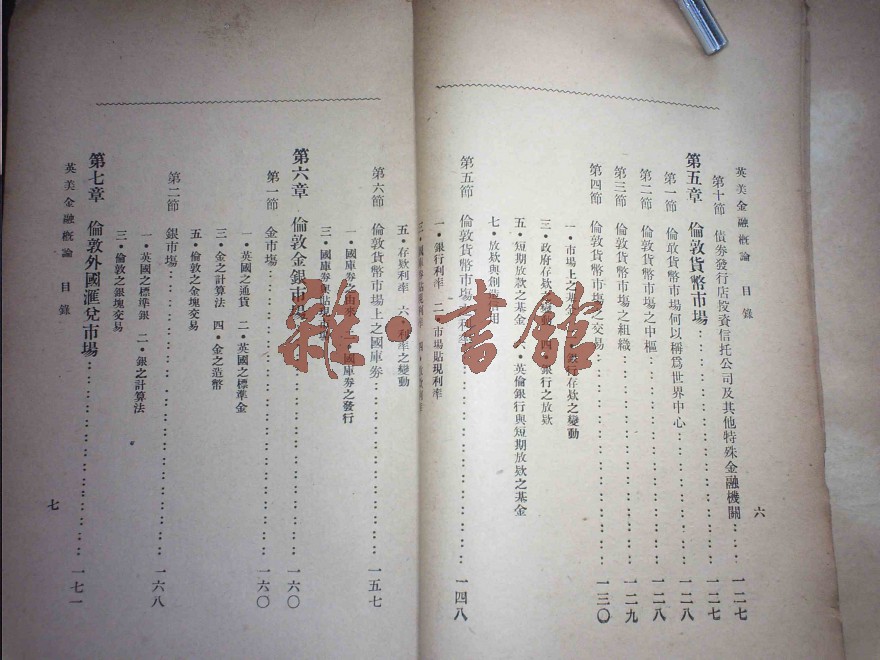 英美金融概論 目錄 六
第十節 債券發行店投資信托公司及其他特殊金融機關 一二七
第五章 倫敦貨幣市場 一二七
第一節 倫敦貨幣市場何以稱爲世界中心 一二八
第二節 倫敦貨幣市塲之中樞 一二八
第三節 倫敦貨幣市塲之組織 一二九
第四節 倫敦貨幣市塲之交易 一三〇
一・市塲上之基金 銀行存欵之變動
三・政府存欵 四 銀行之放欵
五・短期放欵之基金 英倫銀行與短期放欵之基金
七・放欵與創造信用
第五節 倫敦貨幣市塲 利率 一四八
一・銀行利率 二・市塲貼現利率
三・國庫券貼現利率 四・放欵利率
五・存欵利率 六・利率之變動
第六節 倫敦貨幣市塲上之國庫券 一五七
一・國庫券之由來 國庫券之發行
三・國庫券 貼現
第六章 倫敦金銀市塲 一六〇
第一節 金市塲 一六〇
一・英國之通貨 二・英國之標準金
三・金之計算法 四・金之造幣
五・倫敦之金塊交易
第二節 銀市塲 一六八
一・英國之標準銀 二・銀之計算法
三・倫敦之銀塊交易
第七章 倫敦外國滙兌市塲 一七一
英美金融概論 目錄 七
雜・書館